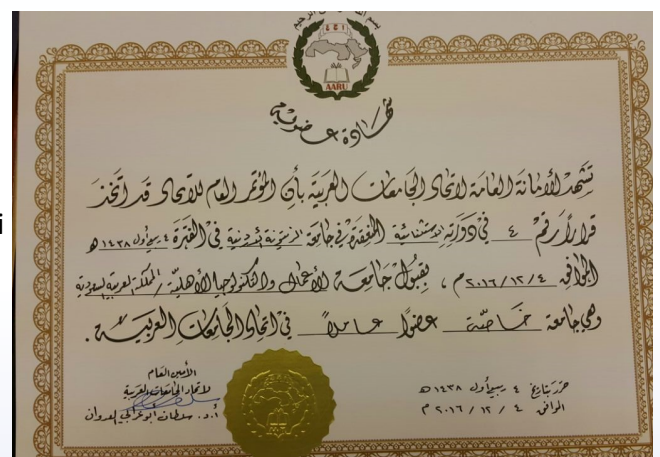 بسم الله الرحمن الرحيم
AARU
شهادة عضوية
تشهد الأمانة العامة لاتحاد الجامعات العربية بأن المؤتمر العام للاتحاد قد اتخذ
قراراً رقم ٤ في دورته الاستثنائية المنعقدة في جامعة الزيتونة الأردنية في الفترة ٤ ربيع أول ١٤٣٨ هـ
الموافق ٢٠١٦/١٢/٤ م ، بقبول جامعة الأعمال والتكنولوجيا الأهلية / المملكة العربية السعودية
وهي جامعة خاصة عضواً عاملاً في اتحاد الجامعات العربية .
الأمين العام
لاتحاد الجامعات العربية
أ.د. سلطان أبو عرابي العدوان
حرر بتاريخ ٤ ربيع أول ١٤٣٨ هـ
الموافق ٤ / ١٢ / ٢٠١٦ م
i